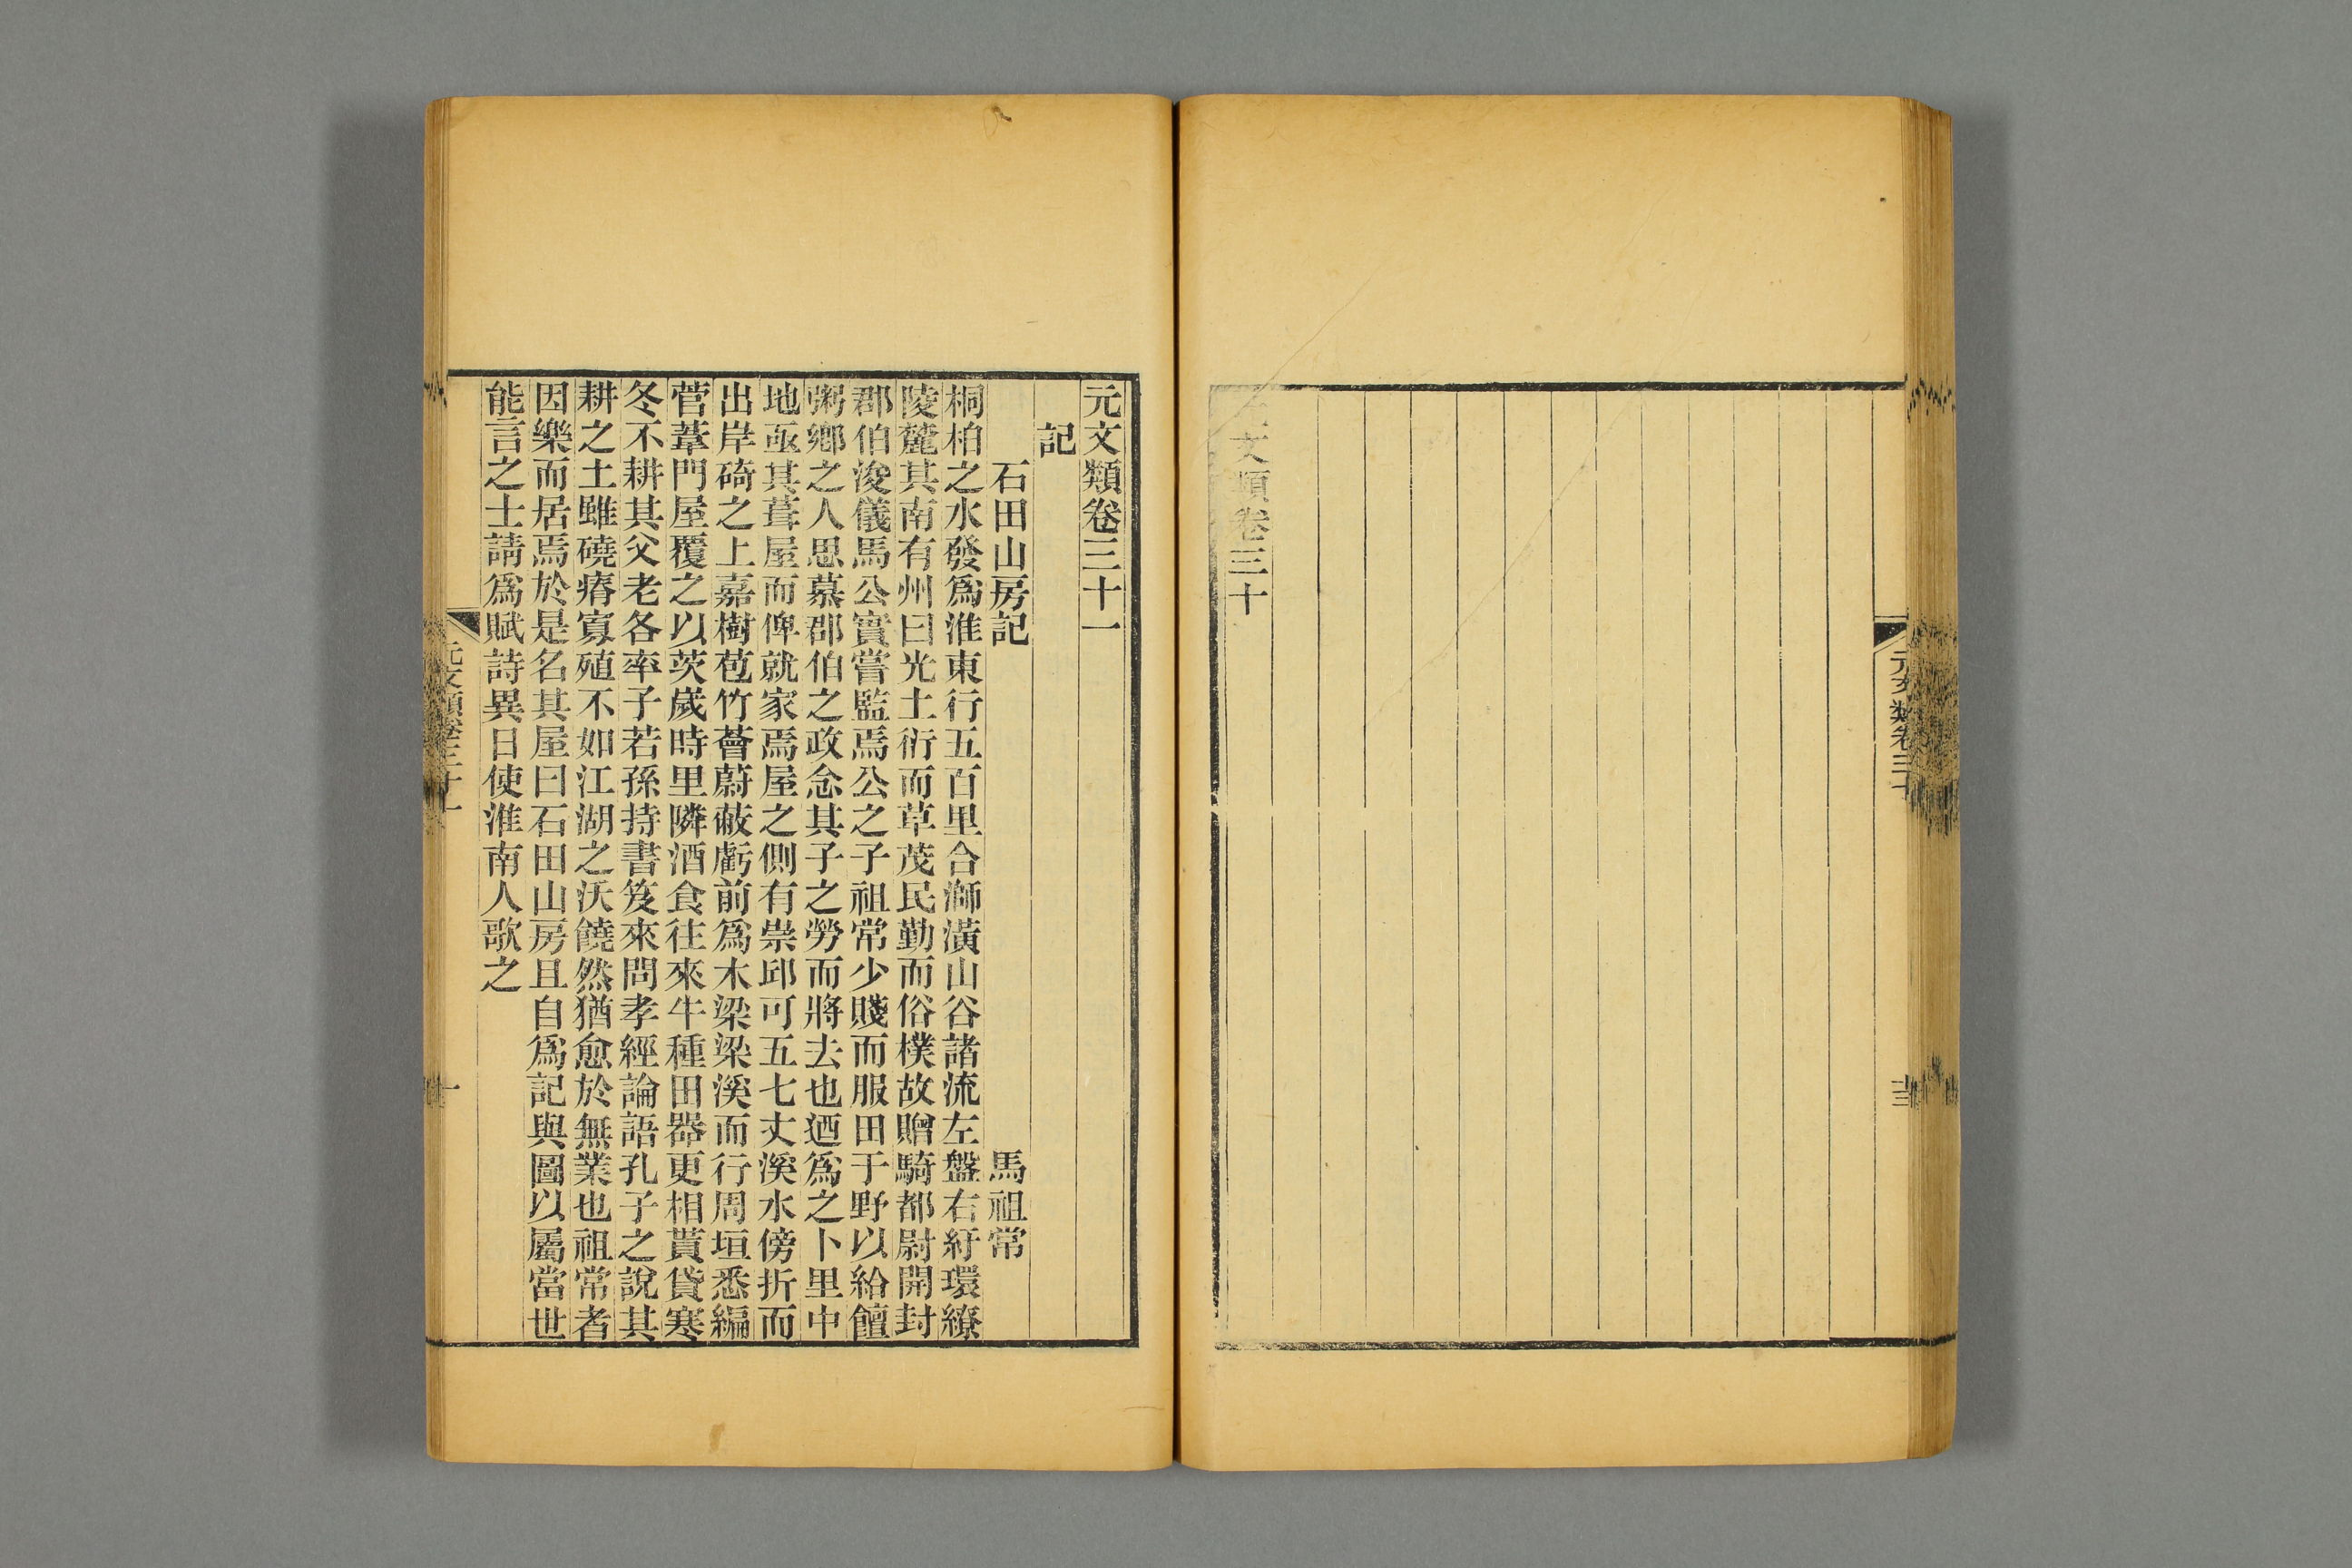 元文類卷三十
十三
文類卷三十
元文類卷三十一
記
石田山房記 馬祖常
桐柏之水發爲淮東行五百里合溮潢山谷諸流左盤右紆環繚
陵麓其南有州曰光土衍而草茂民勤而俗樸故贈騎都尉開封
郡伯浚儀馬公實嘗監焉公之子祖常少賤而服田于野以給饘
粥鄉之人思慕郡伯之政念其子之勞而將去也迺爲之卜里中
地亟其葺屋而俾就家焉屋之側有崇邱可五七丈溪水傍折而
出岸碕之上嘉樹苞竹薈蔚蔽虧前爲木梁梁溪而行周垣悉編
菅葦門屋覆之以茨歲時里隣酒食往來牛種田器更相貰貸寒
冬不耕其父老各率子若孫持書笈來問孝經論語孔子之說其
耕之土雖磽瘠寡殖不如江湖之沃饒然猶愈於無業也祖常者
因樂而居焉於是名其屋曰石田山房且自爲記與圖以屬當世
能言之士請爲賦詩異日使淮南人歌之
元文類卷三十一
一